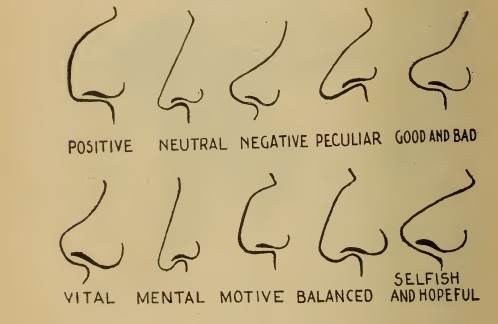 POSITIVE NEUTRAL NEGATIVE PECULIAR GOOD AND BAD
VITAL MENTAL MOTIVE BALANCED SELFISH
AND HOPEFUL